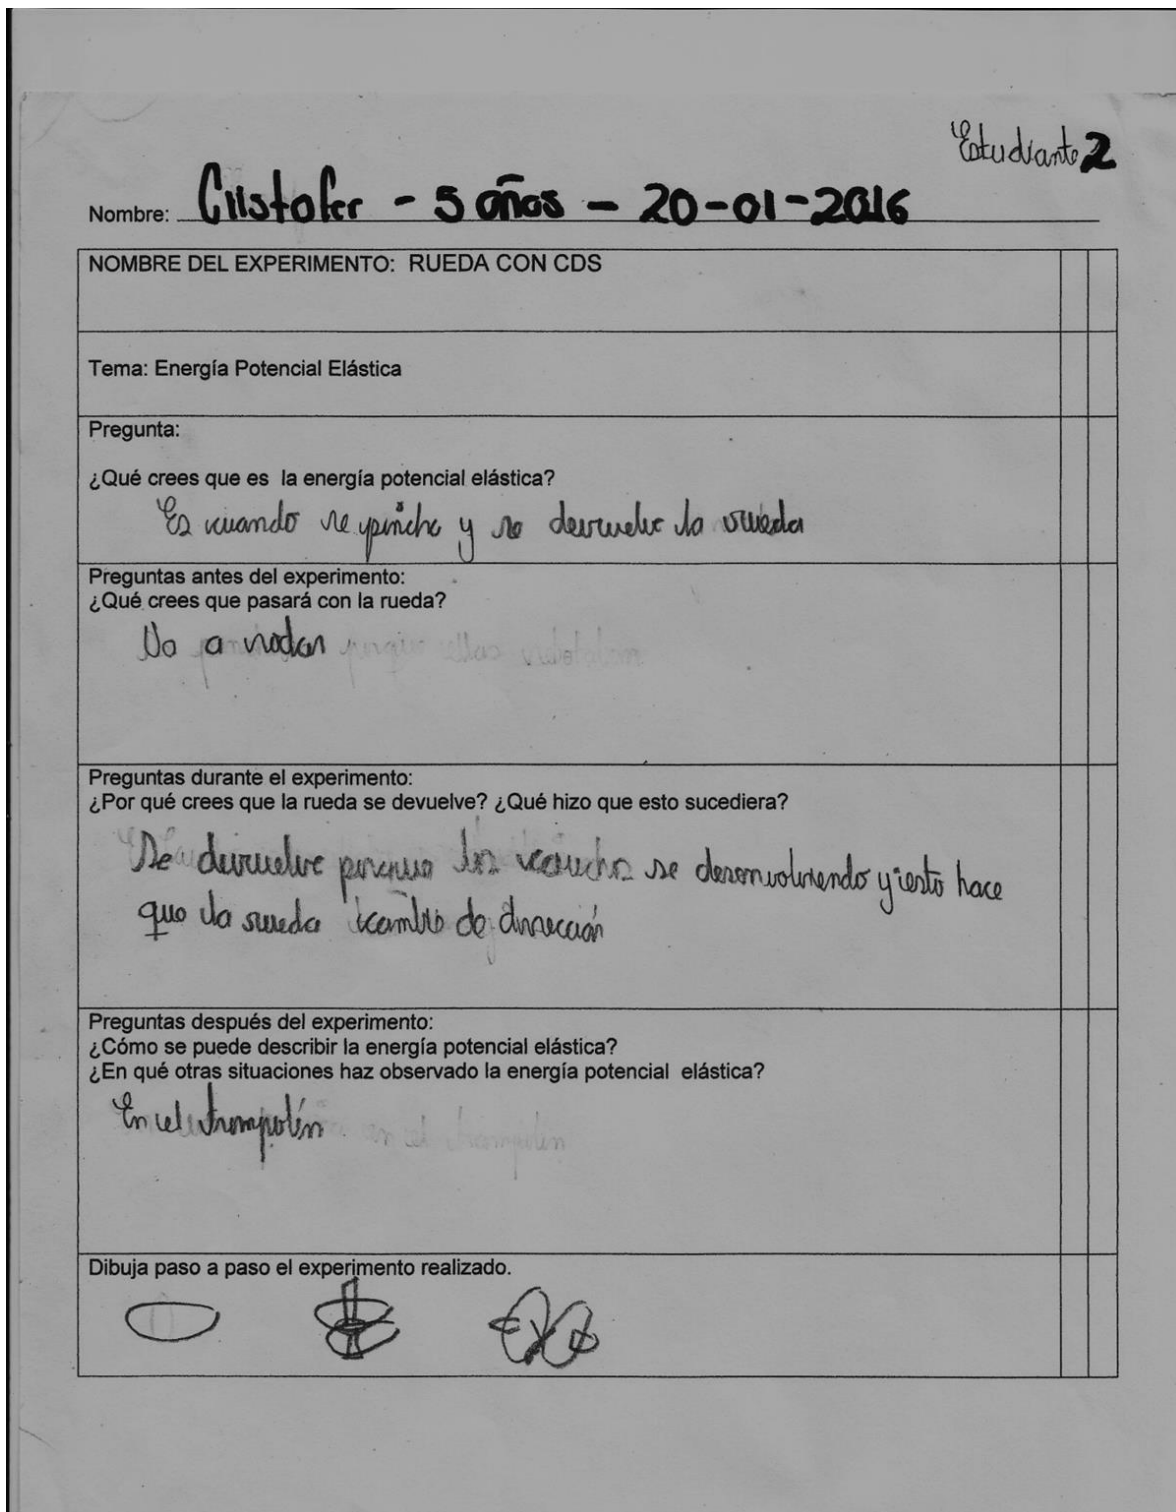 Estudiante 2
Nombre: Cristofer - 5 años - 20-01-2016
NOMBRE DEL EXPERIMENTO: RUEDA CON CDS
Tema: Energía Potencial Elástica
Pregunta:
¿Qué crees que es la energía potencial elástica?
Es cuando se pincha y se devuelve la rueda
Preguntas antes del experimento:
¿Qué crees que pasará con la rueda?
Va a rodar
Preguntas durante el experimento:
¿Por qué crees que la rueda se devuelve? ¿Qué hizo que esto sucediera?
Se devuelve porque los cauchos se desenvolviendo y esto hace
que la rueda cambie de dirección
Preguntas después del experimento:
¿Cómo se puede describir la energía potencial elástica?
¿En qué otras situaciones haz observado la energía potencial elástica?
En el trampolín
Dibuja paso a paso el experimento realizado.